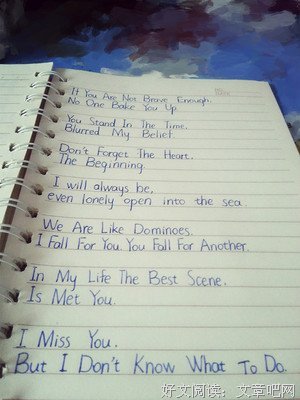 If You Are Not Brave Enough.
No One Bake You Up.
You Stand In The Time.
Blurred My Belief.
Don't Forget The Heart.
The Beginning.
I will always be,
even lonely open into the sea.
We Are Like Dominoes.
I Fall For You. You Fall For Another.
In My Life The Best Scene.
Is Met You.
I Miss You.
But I Don't Know What To Do.
好文阅读：文章吧网